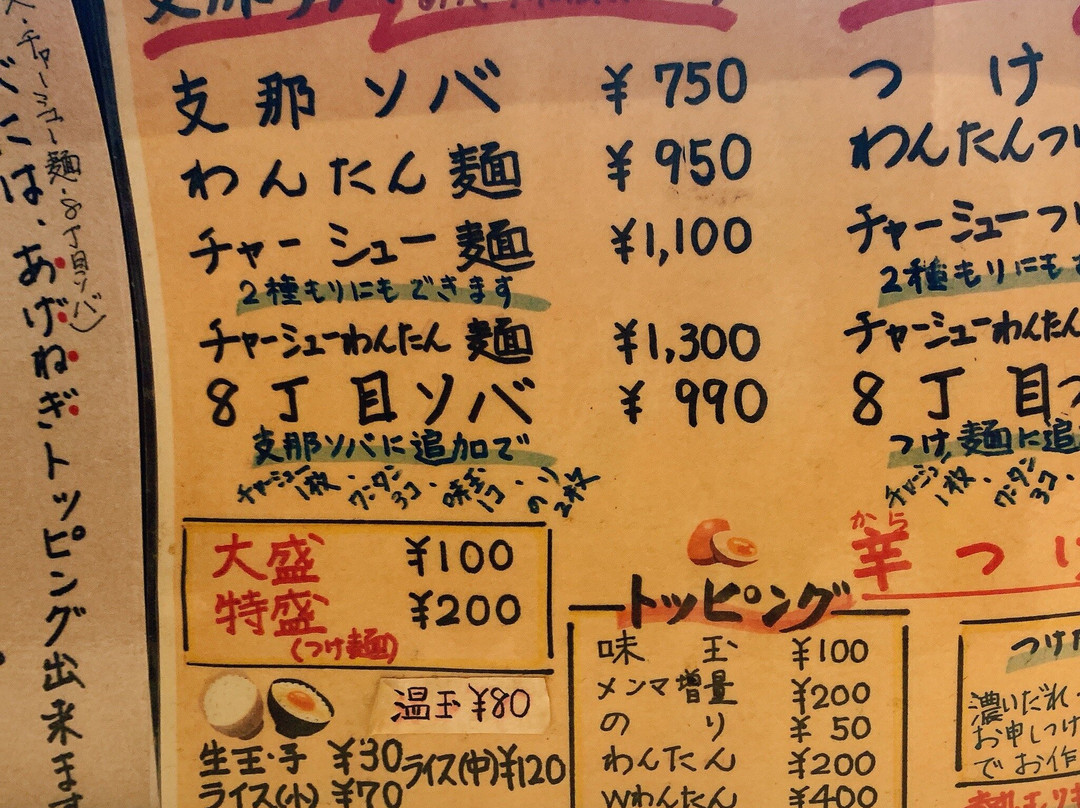 支那ソバ ¥750
わんたん麺 ¥950
チャーシュー麺 ¥1,100
2種もりにもできます
チャーシューわんたん麺 ¥1,300
8丁目ソバ ¥990
支那ソバに追加で
チャーシュー1枚・ワンタン3コ・味玉1コ・のり2枚
大盛 ¥100
特盛 ¥200
(つけ麺)
温玉 ¥80
生玉子 ¥30
ライス(中)¥120
ライス(小) ¥70
トッピング
味玉 ¥100
メンマ増量 ¥200
のり ¥50
わんたん ¥200
Wわんたん ¥400
つけ
わんたんつけ
チャーシューつけ
2種もりにも
チャーシューわんたん
8丁目つ
つけ麺に追
チャーシュー1枚・ワンタン3コ
から
辛つけ
つけだ
濃いだれ
お申しつけ
でお作
チャーシュー麺・8丁目ソバ)
には、あげねぎトッピング出来ます